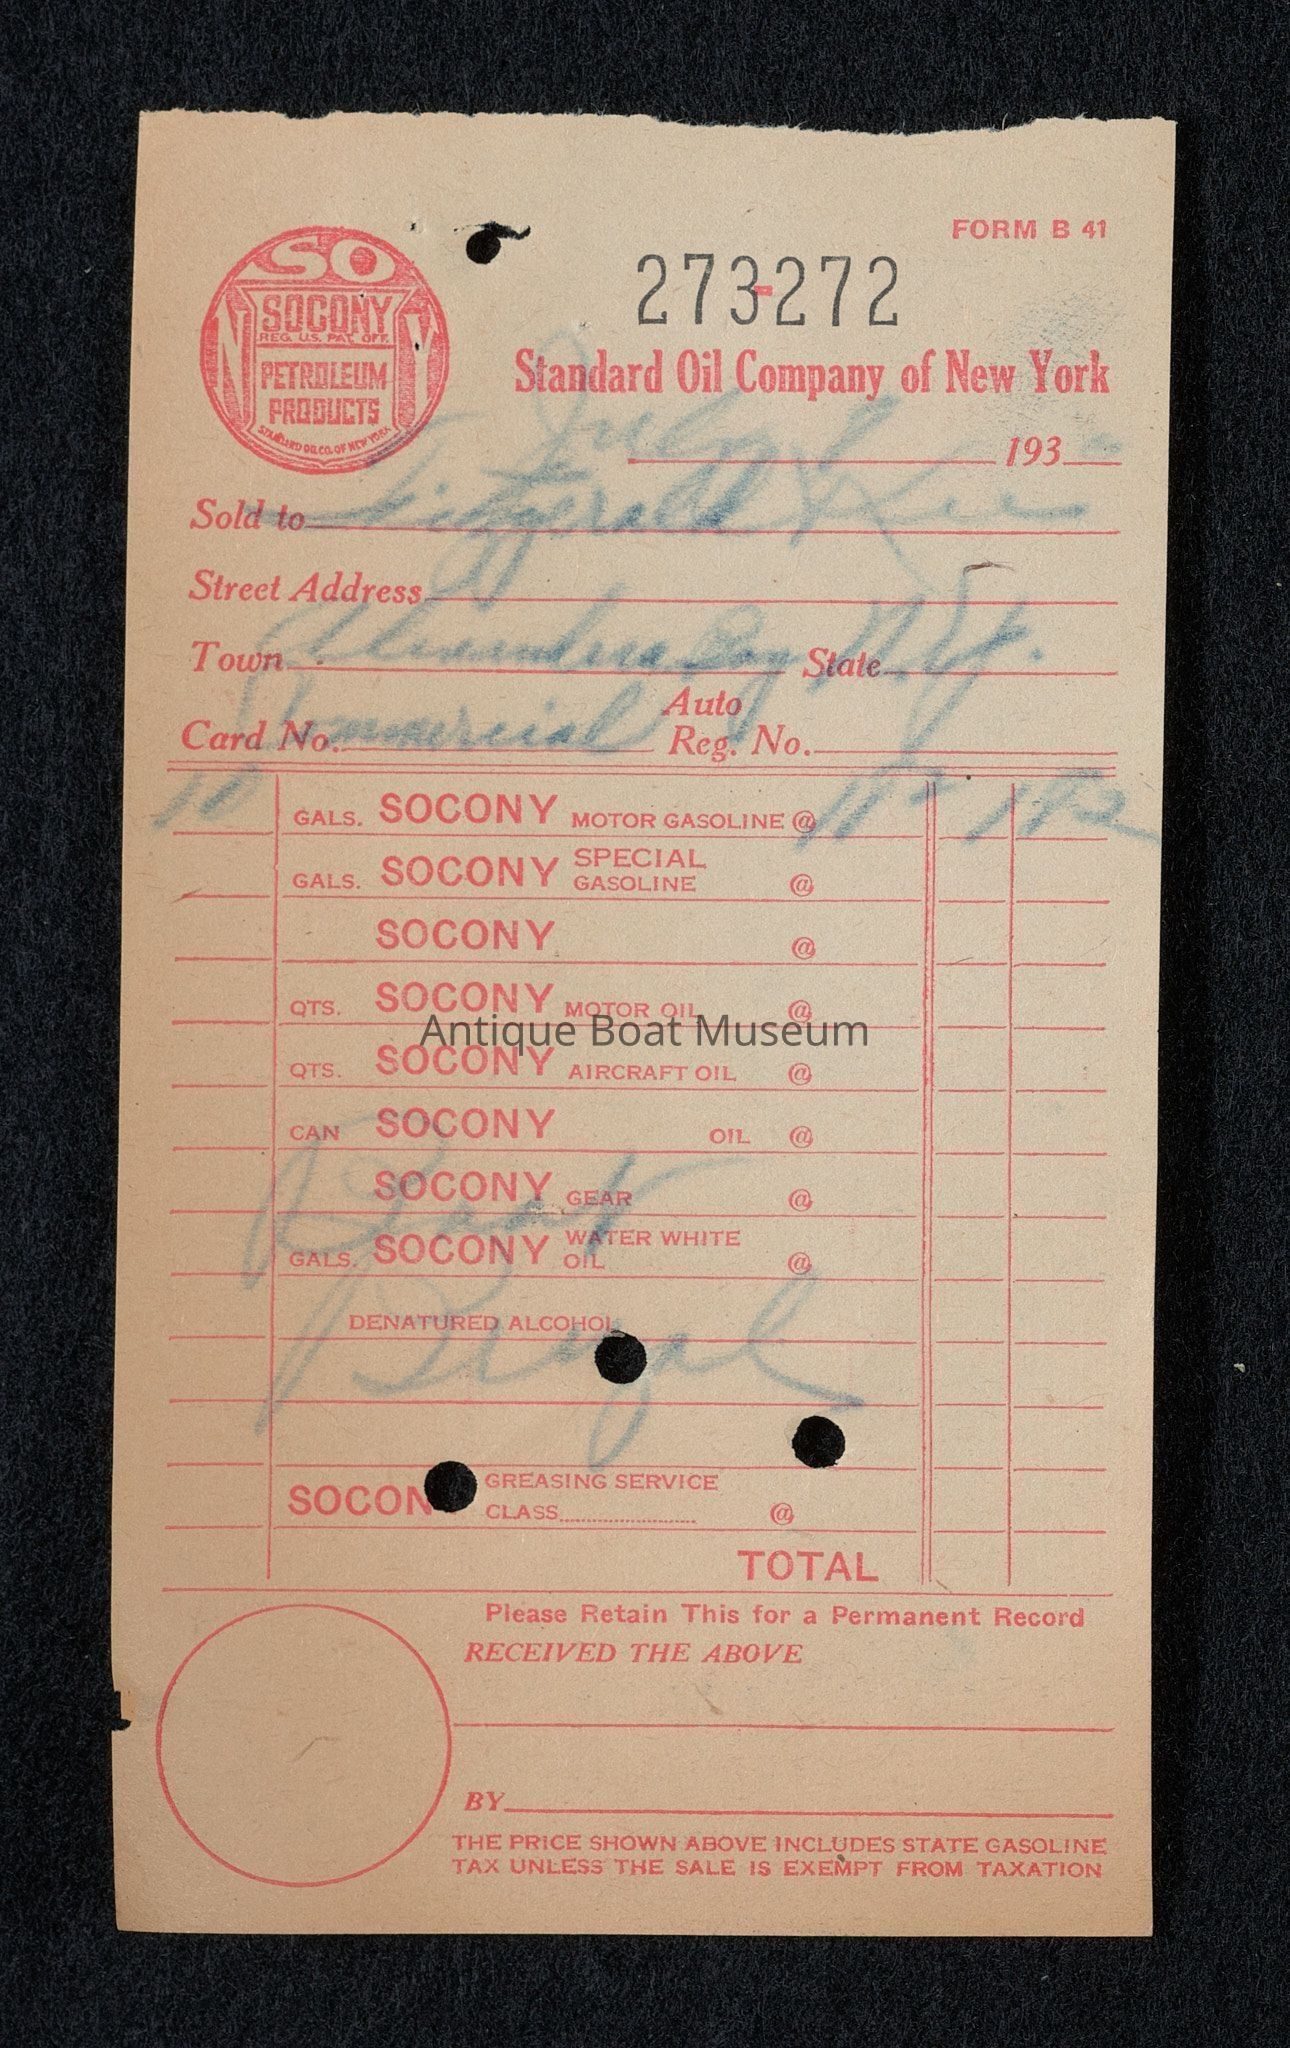 FORM B 41
SO
NY
SOCONY
REG. U.S. PAT. OFF.
PETROLEUM
PRODUCTS
STANDARD OIL CO. OF NEW YORK
273-272
Standard Oil Company of New York
July 193
Sold to Fitzgerald & Lee
Street Address
Town Alexandria Bay State N.Y.
Card No. Commercial Auto Reg. No.
10 GALS. SOCONY MOTOR GASOLINE @
GALS. SOCONY SPECIAL GASOLINE @
SOCONY @
QTS. SOCONY MOTOR OIL @
Antique Boat Museum
QTS. SOCONY AIRCRAFT OIL @
CAN SOCONY OIL @
SOCONY GEAR @
Boat
GALS. SOCONY WATER WHITE OIL @
DENATURED ALCOHOL
SOCON GREASING SERVICE
CLASS @
TOTAL
Please Retain This for a Permanent Record
RECEIVED THE ABOVE
BY
THE PRICE SHOWN ABOVE INCLUDES STATE GASOLINE
TAX UNLESS THE SALE IS EXEMPT FROM TAXATION